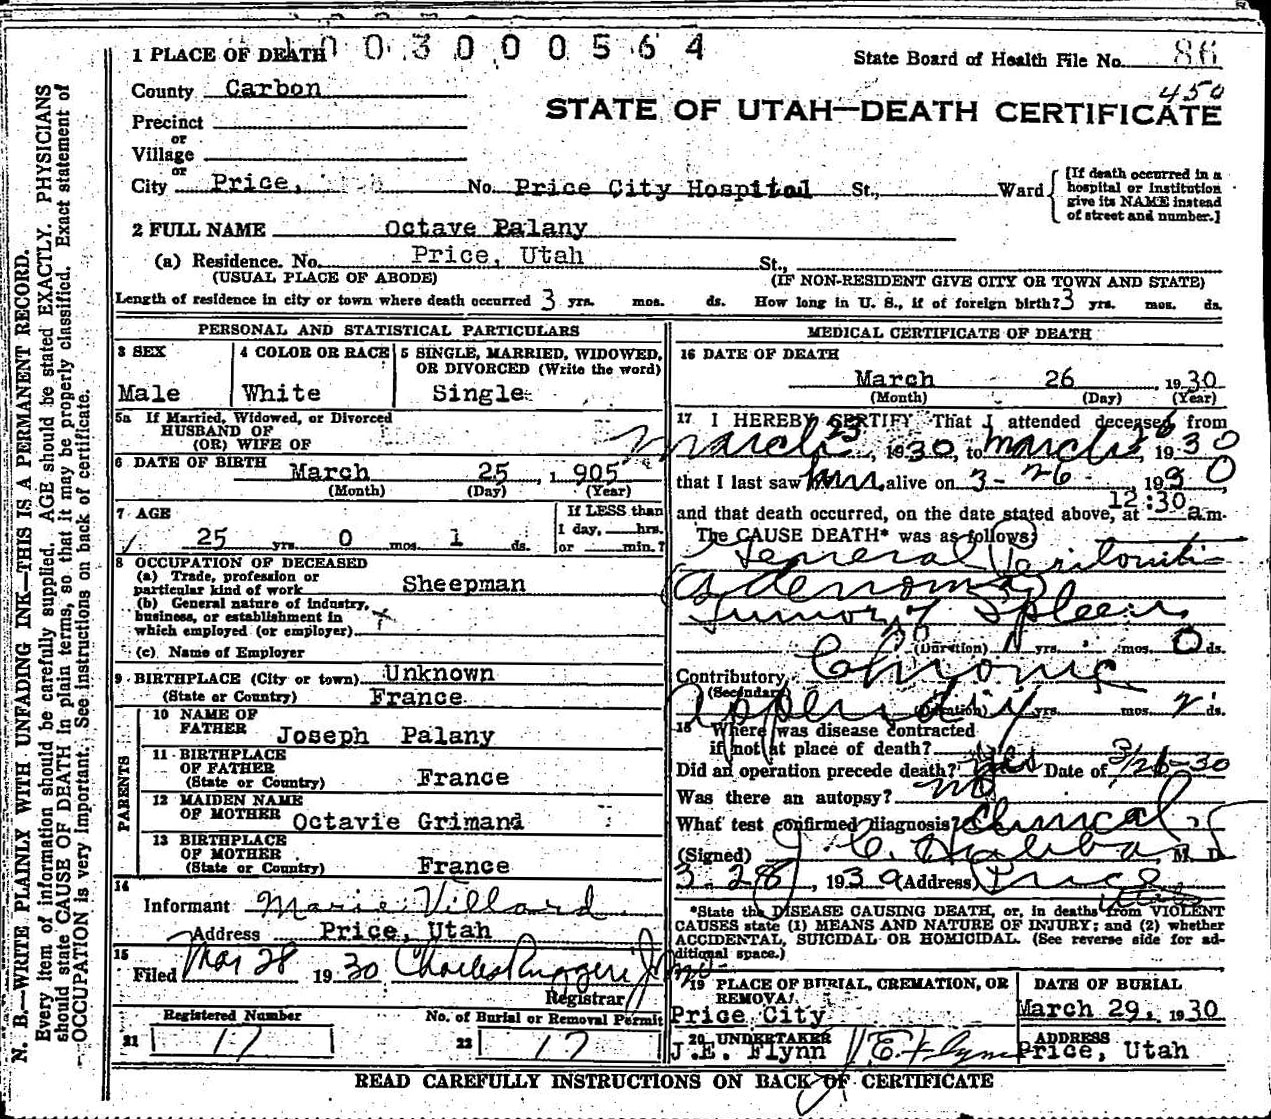 1 PLACE OF DEATH
003000564
State Board of Health File No. 86
450
County Carbon
STATE OF UTAH—DEATH CERTIFICATE
Precinct
or
Village
or
City Price, No. Price City Hospital St., Ward
[If death occurred in a hospital or institution give its NAME instead of street and number.]
2 FULL NAME Octave Palany
(a) Residence. No. Price, Utah St.,
(USUAL PLACE OF ABODE) (IF NON-RESIDENT GIVE CITY OR TOWN AND STATE)
Length of residence in city or town where death occurred 3 yrs. mos. ds. How long in U. S., if of foreign birth? 3 yrs. mos. ds.
PERSONAL AND STATISTICAL PARTICULARS
3 SEX
Male
4 COLOR OR RACE
White
5 SINGLE, MARRIED, WIDOWED,
OR DIVORCED (Write the word)
Single
5a If Married, Widowed, or Divorced
HUSBAND OF
(OR) WIFE OF
6 DATE OF BIRTH March 25, 1905
(Month) (Day) (Year)
7 AGE
25 yrs. 0 mos. 1 ds.
If LESS than
1 day, hrs.
or min.?
8 OCCUPATION OF DECEASED
(a) Trade, profession or
particular kind of work Sheepman
(b) General nature of industry,
business, or establishment in
which employed (or employer)
(c) Name of Employer
9 BIRTHPLACE (City or town) Unknown
(State or Country) France
PARENTS
10 NAME OF
FATHER Joseph Palany
11 BIRTHPLACE
OF FATHER
(State or Country) France
12 MAIDEN NAME
OF MOTHER Octavie Grimand
13 BIRTHPLACE
OF MOTHER
(State or Country) France
14
Informant Marie Villard
Address Price, Utah
15
Filed Mar 28 1930 Charles Ruggeri
Registrar
Registered Number No. of Burial or Removal Permit
21 17 22 17
MEDICAL CERTIFICATE OF DEATH
16 DATE OF DEATH
March 26, 1930
(Month) (Day) (Year)
17 I HEREBY CERTIFY That I attended deceased from
March 23, 1930, to March 26, 1930
that I last saw him alive on 3-26- 1930,
and that death occurred, on the date stated above, at 12:30 a.m.
The CAUSE DEATH* was as follows:
General Peritonitis
(Adenoma)
Tumor of Spleen
(Duration) yrs. mos. ds.
Contributory Chronic
(Secondary)
(Duration) yrs. mos. 2 ds.
18 Where was disease contracted
if not at place of death?
Did an operation precede death? yes Date of 3/26-30
Was there an autopsy? no
What test confirmed diagnosis? Clinical
(Signed) M. D.
3-28, 1930 (Address) Price
Utah
*State the DISEASE CAUSING DEATH, or, in deaths from VIOLENT
CAUSES state (1) MEANS AND NATURE OF INJURY; and (2) whether
ACCIDENTAL, SUICIDAL OR HOMICIDAL. (See reverse side for ad-
ditional space.)
19 PLACE OF BURIAL, CREMATION, OR
REMOVAL
Price City
DATE OF BURIAL
March 29, 1930
20 UNDERTAKER
J.E. Flynn J E Flynn
ADDRESS
Price, Utah
READ CAREFULLY INSTRUCTIONS ON BACK OF CERTIFICATE
N. B.—WRITE PLAINLY WITH UNFADING INK—THIS IS A PERMANENT RECORD.
Every item of information should be carefully supplied. AGE should be stated EXACTLY. PHYSICIANS
should state CAUSE OF DEATH in plain terms, so that it may be properly classified. Exact statement of
OCCUPATION is very important. See instructions on back of certificate.